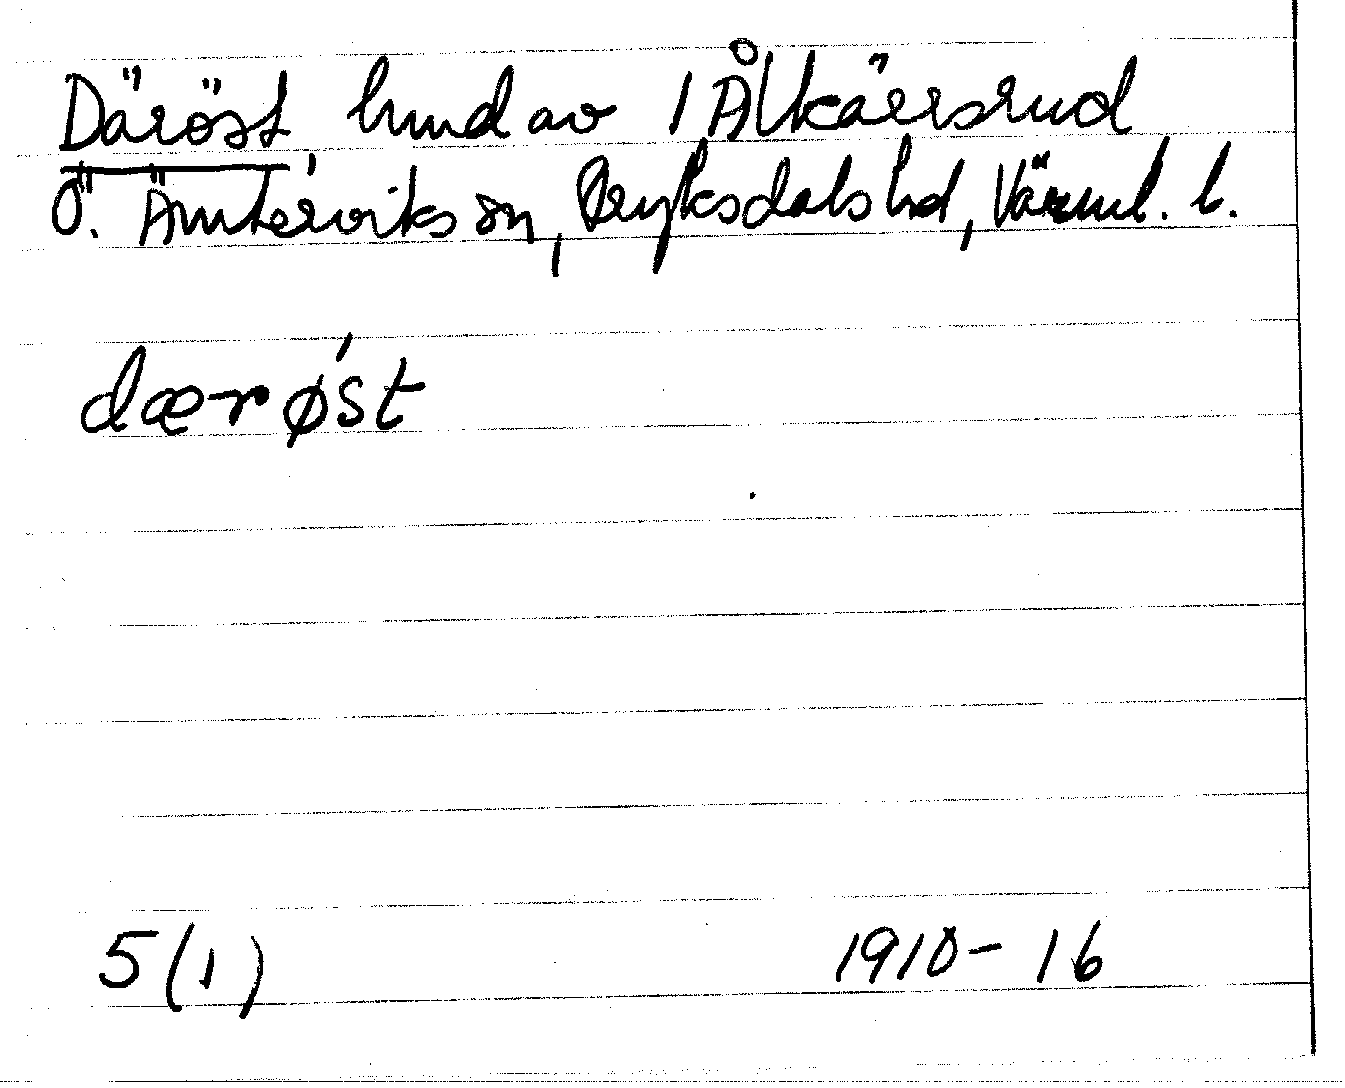 Däröst, hmd av 1 Ålkärrsrud
Ö. Ämterviks sn, Fryksdals hd, Värml. l.
dærø´st
5(1) 1910-16